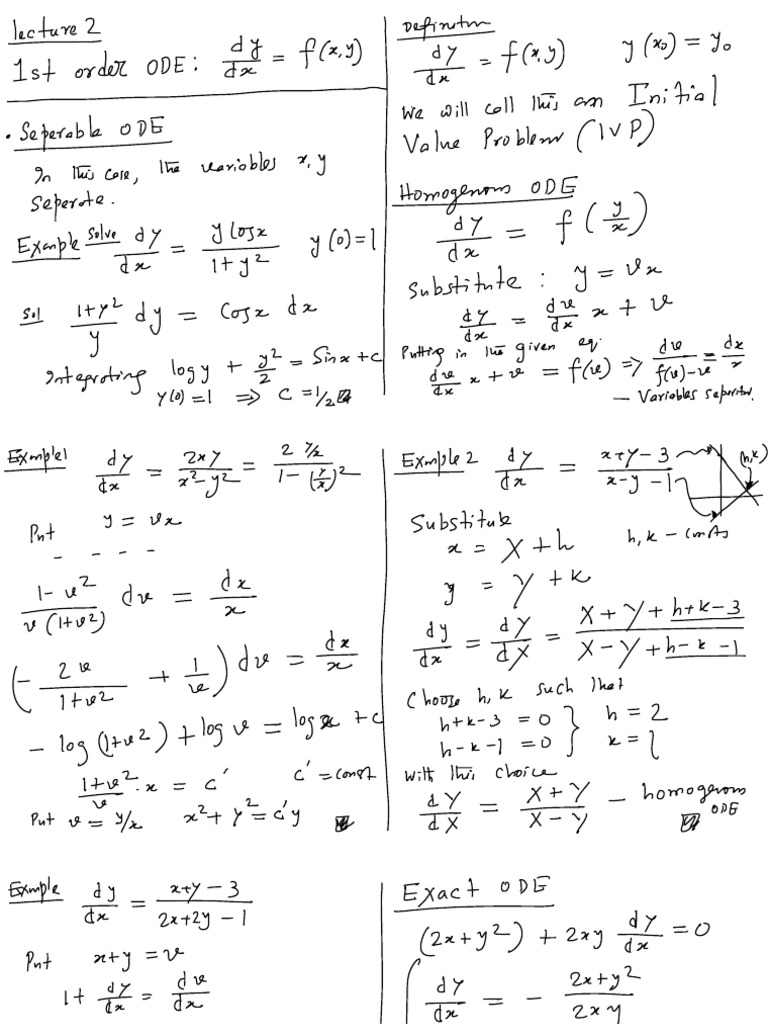 lecture 2
1st order ODE: dy/dx = f(x,y)
• Seperable ODE
In this case, the variables x, y
seperate.
Example Solve dy/dx = y cosx / (1+y²)   y(0)=1
Sol (1+y²)/y dy = Cosx dx
Integrating log y + y²/2 = Sinx + c
y(0)=1 ⇒ C = 1/2
Definition
dy/dx = f(x,y)   y(x₀) = y₀
We will call this an Initial
Value Problem (IVP)
Homogenous ODE
dy/dx = f(y/x)
Substitute: y = vx
dy/dx = dv/dx x + v
Putting in the given eq.
dv/dx x + v = f(v) ⇒ dv/(f(v)-v) = dx/x
— Variables
Example 1 dy/dx = 2xy/(x²-y²) = 2 y/x / (1-(y/x)²)
Put y = vx
- - - -
(1-v²)/(v(1+v²)) dv = dx/x
(- 2v/(1+v²) + 1/v) dv = dx/x
- log(1+v²) + log v = log x + c
(1+v²)/v · x = c'   c' = const
Put v = y/x   x² + y² = c'y
Example 2 dy/dx = (x+y-3)/(x-y-1)   (h,k)
Substitute   h, k - consts
x = X + h
y = Y + k
dy/dx = dY/dX = (X+Y+h+k-3)/(X-Y+h-k-1)
Choose h, k such that
h+k-3 = 0 } h = 2
h-k-1 = 0 } k = 1
With this choice
dY/dX = (X+Y)/(X-Y) - homogenous
ODE
Example dy/dx = (x+y-3)/(2x+2y-1)
Put x+y = v
1 + dy/dx = dv/dx
Exact ODE
(2x+y²) + 2xy dy/dx = 0
dy/dx = - (2x+y²)/(2xy)